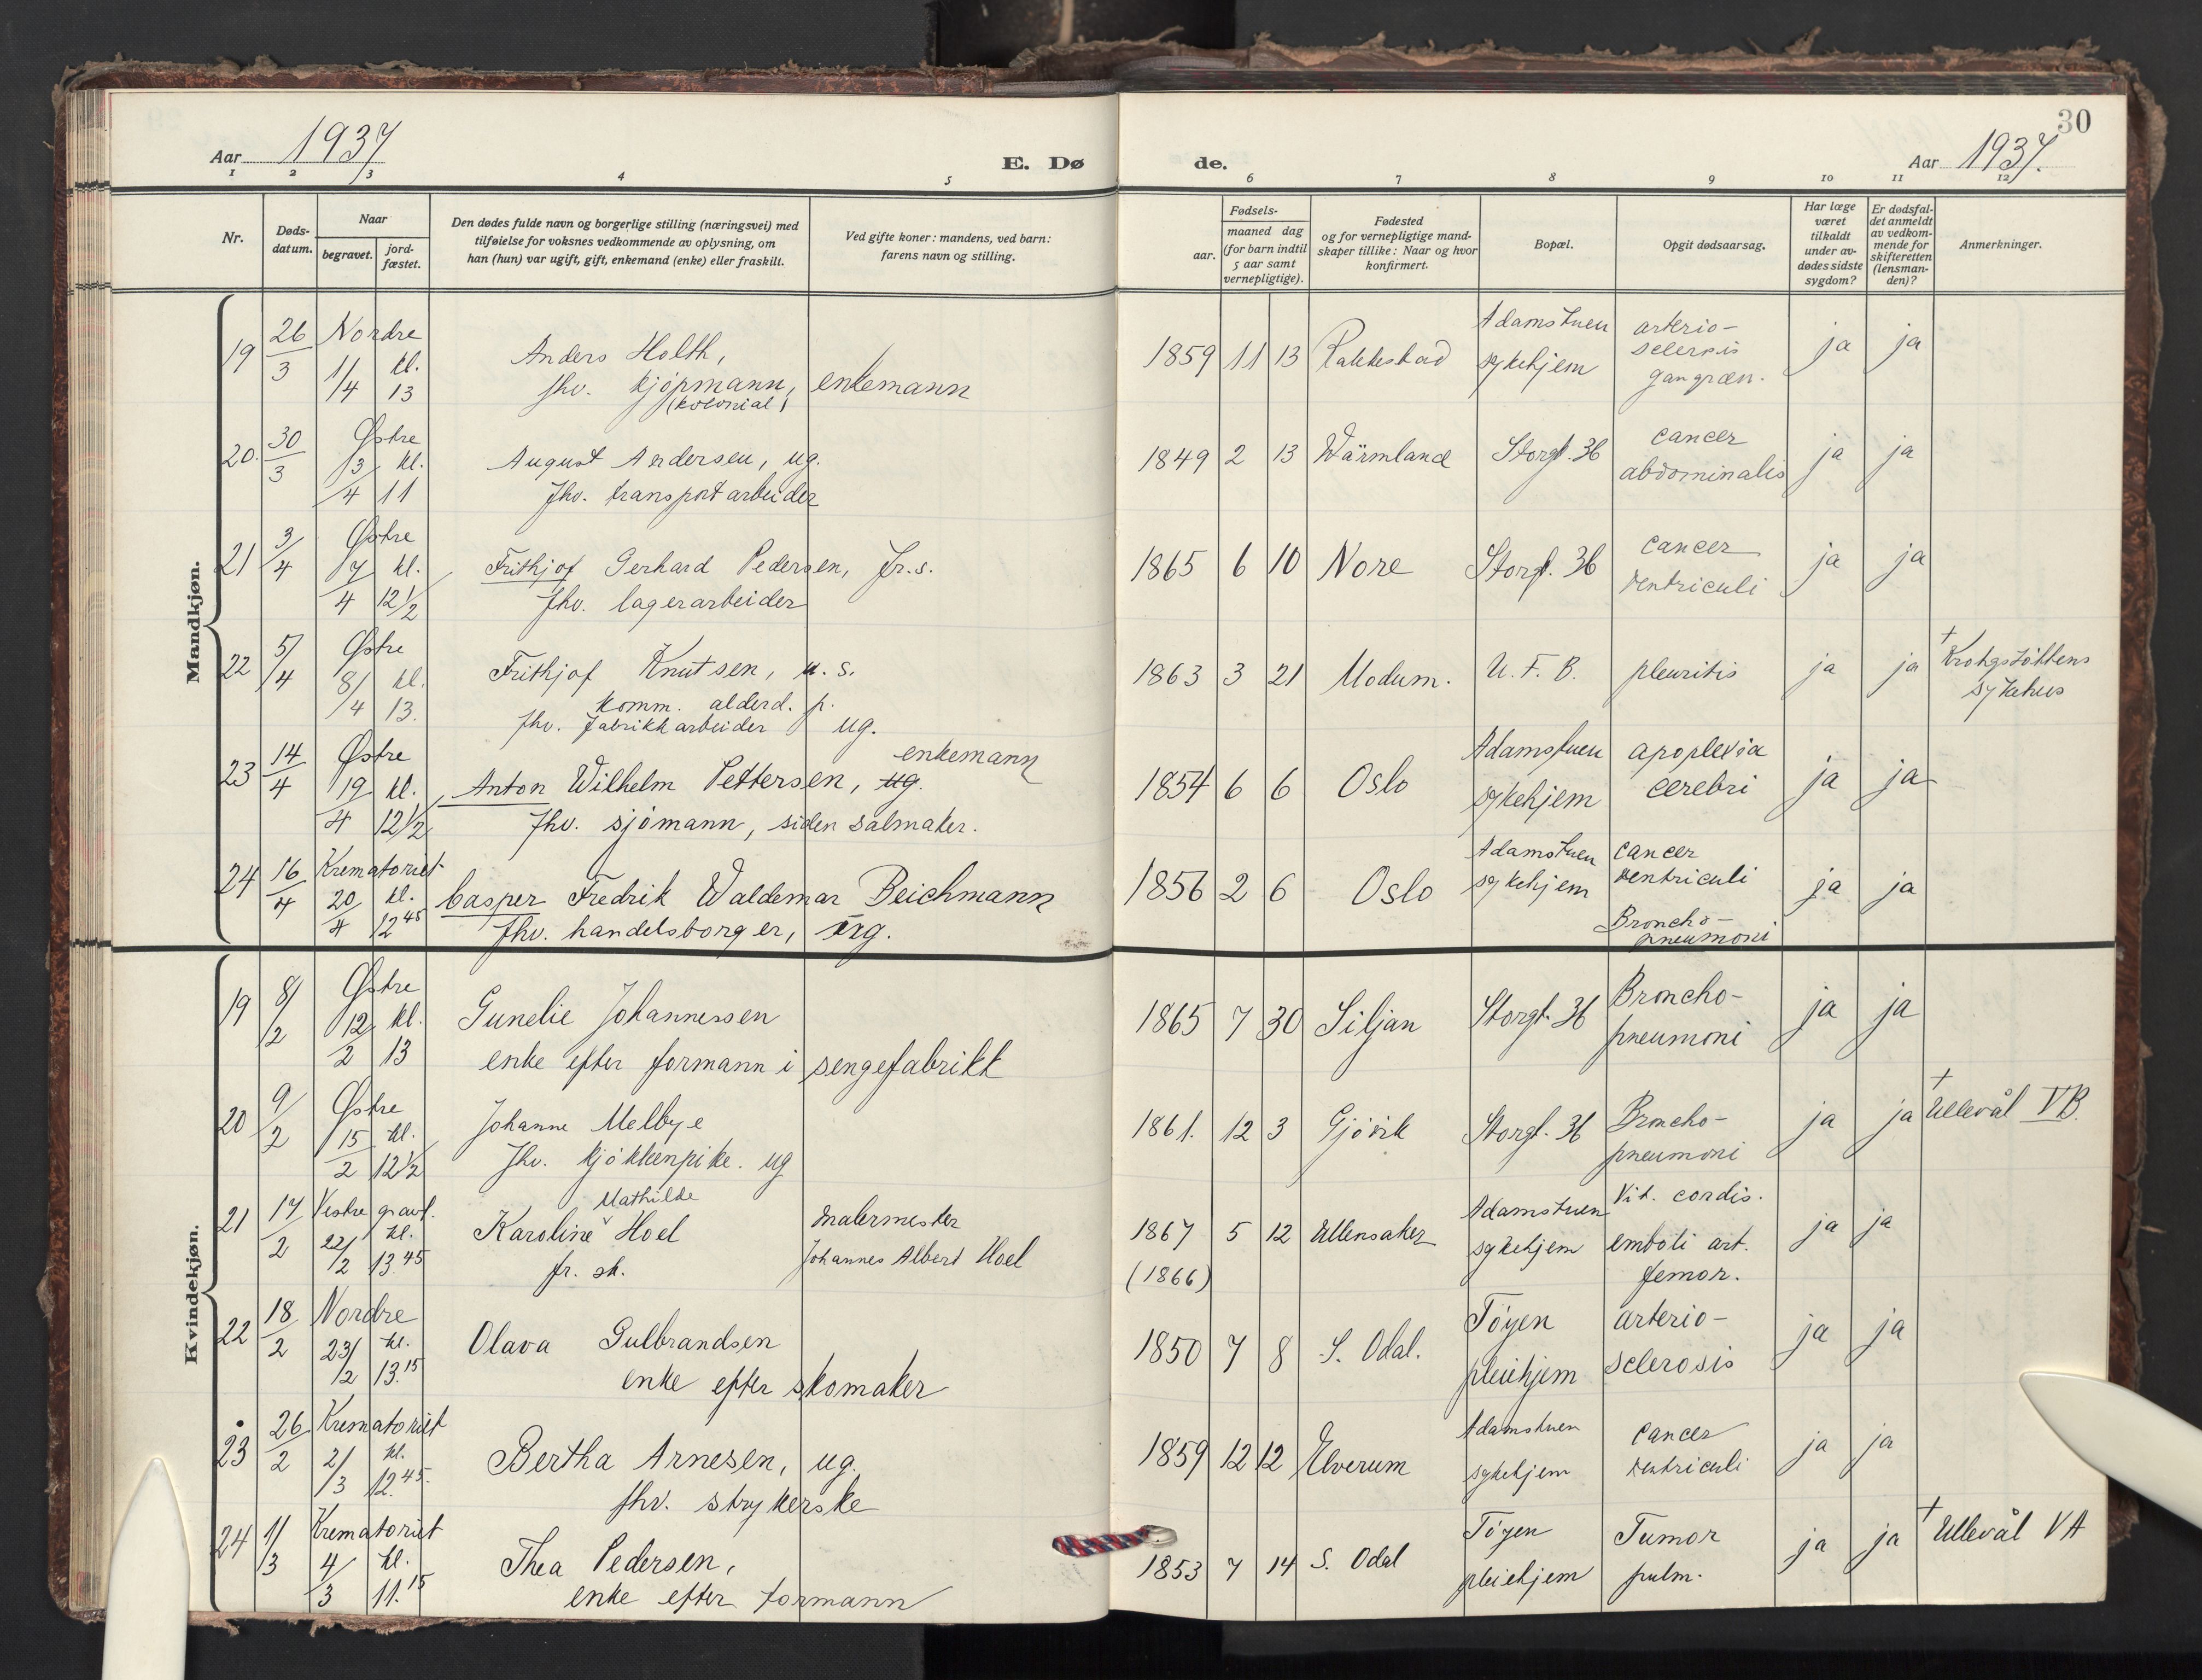 30
Aar 1937
E. Dø
de.
Aar 1937.
1 2 3 4 5 6 7 8 9 10 11 12
Nr.
Døds-
datum.
Naar
begravet.
jord-
fæstet.
Den dødes fulde navn og borgerlige stilling (næringsvei) med
tilføielse for voksnes vedkommende av oplysning, om
han (hun) var ugift, gift, enkemand (enke) eller fraskilt.
Ved gifte koner: mandens, ved barn:
farens navn og stilling.
aar.
Fødsels-
maaned dag
(for barn indtil
5 aar samt
vernepligtige).
Fødested
og for vernepligtige mand-
skaper tillike: Naar og hvor
konfirmert.
Bopæl.
Opgit dødsaarsag.
Har læge
været
tilkaldt
under av-
dødes sidste
sygdom?
Er dødsfal-
det anmeldt
av vedkom-
mende for
skifteretten
(lensman-
den)?
Anmerkninger.
Mandkjøn.
19 26/3 Nordre 1/4 kl. 13
Anders Holth,
fhv. kjöpmann, enkemann
(kolonial)
1859 11 13 Rakkestad Adamstuen sykehjem arterio-
sclerosis
gangræn. ja ja
20. 30/3 Østre 3/4 kl. 11
August Andersen, ug.
fhv. transportarbeider
1849 2 13 Wärmland Storgt. 36 cancer
abdominalis ja ja
21 3/4 Østre 7/4 kl. 12 1/2
Frithjof Gerhard Pedersen, fr.s.
fhv. lagerarbeider
1865 6 10 Nore Storgt. 36 cancer
ventriculi ja ja
22 5/4 Østre 8/4 kl. 13.
Frithjof Knutsen, u. s.
komm. alderd. p.
fhv. fabrikkarbeider ug.
1863 3 21 Modum. U. F. B. pleuritis ja ja † Krohgstöttens
sykehus
23 14/4 Østre 19/4 kl. 12 1/2
enkemann
Anton Wilhelm Pettersen, ug.
fhv. sjömann, siden salmaker.
1854 6 6 Oslo Adamstuen sykehjem apoplexia
cerebri ja ja
24 16/4 Krematoriet 20/4 kl. 12 45
Casper Fredrik Waldemar Beichmann
fhv. handelsborger, ug.
1856 2 6 Oslo Adamstuen sykehjem cancer
ventriculi
Broncho-
pneumoni ja ja
Kvindekjøn.
19 8/2 Østre 12/2 kl. 13
Gunelie Johannessen
enke efter formann i sengefabrikk
1865 7 30 Siljan Storgt. 36 Broncho-
pneumoni ja ja
20 9/2 Østre 15/2 kl. 12 1/2
Johanne Melbye
fhv. kjökkenpike. ug
1861. 12 3 Gjövik Storgt. 36 Broncho-
pneumoni ja ja † Ullevål VB
21 17/2 Vestre gravl. 22/2 kl. 13.45
Mathilde
Karoline ˅ Hoel malermester
fr. sk. Johannes Albert Hoel
1867 5 12 Ullensaker
(1866)
Adamstuen sykehjem Vit. cordis.
emboli art.
femor. ja ja
22 18/2 Nordre 23/2 kl. 13.15
Olava Gulbrandsen
enke efter skomaker
1850 7 8 S. Odal. Töyen pleiehjem arterio-
sclerosis ja ja
23 26/2 Krematoriet 2/3 kl. 12.45.
Bertha Arnesen, ug.
fhv. strykerske
1859 12 12 Elverum Adamstuen sykehjem cancer
ventriculi ja ja
24 1/3 Krematoriet 4/3 kl. 11.15
Thea Pedersen,
enke efter formann
1853 7 14 S. Odal Töyen pleiehjem Tumor
pulm. ja ja † Ullevål VA